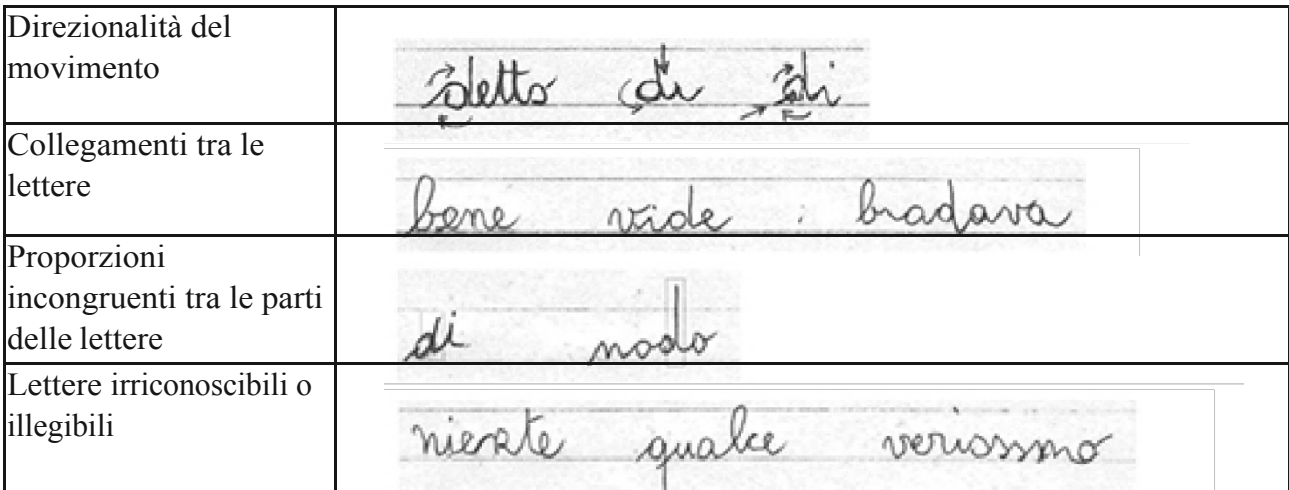 Direzionalità del
movimento
detto di di
Collegamenti tra le
lettere
bene vide : bradava
Proporzioni
incongruenti tra le parti
delle lettere
di nodo
Lettere irriconoscibili o
illegibili
niente